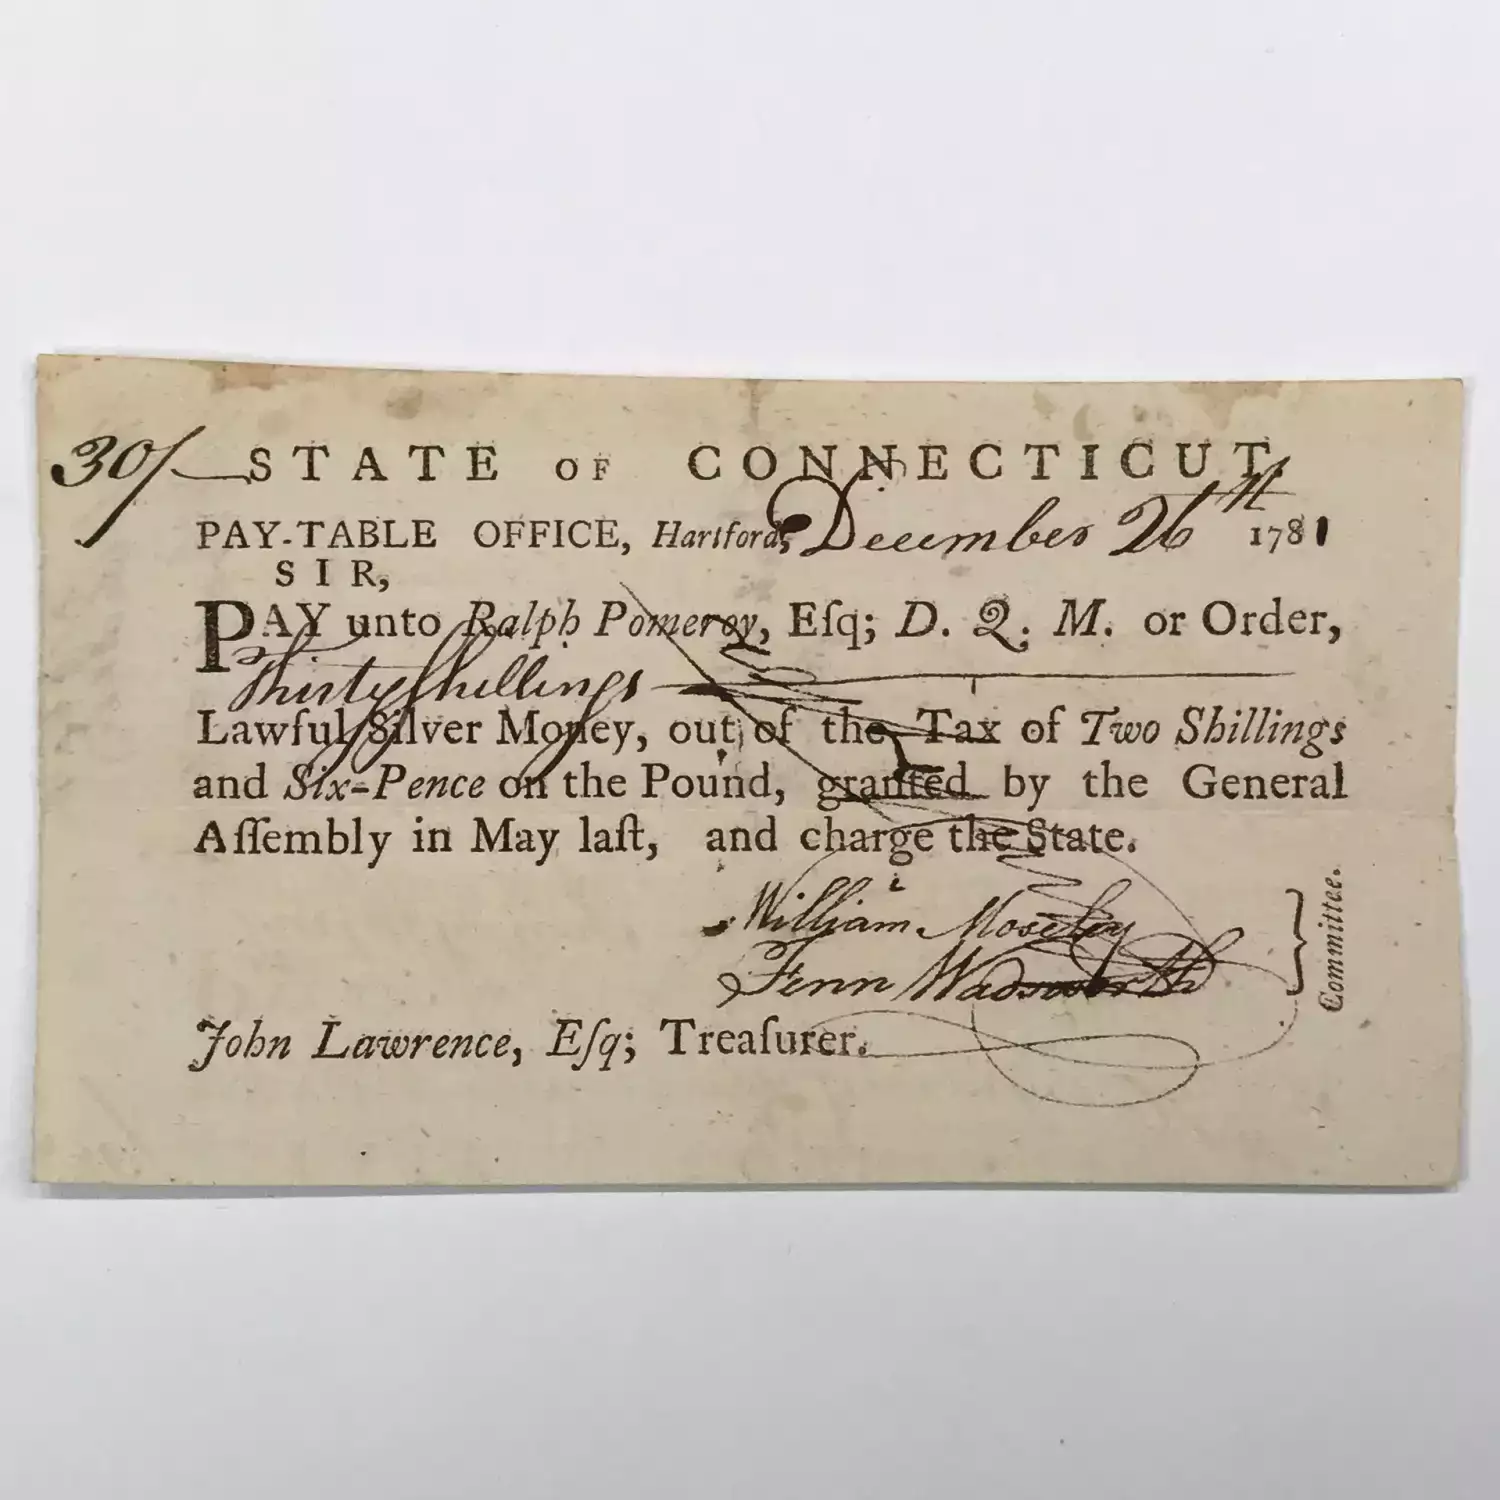 30/ STATE OF CONNECTICUT,
PAY-TABLE OFFICE, Hartford, December 26th 1781
SIR,
PAY unto Ralph Pomeroy, Eſq; D. Q. M. or Order,
Thirty ſhillings
Lawful Silver Money, out of the Tax of Two Shillings
and Six-Pence on the Pound, granted by the General
Aſſembly in May laſt, and charge the State.
William Moseley
Fenn Wadsworth
Committee.
John Lawrence, Eſq; Treaſurer.